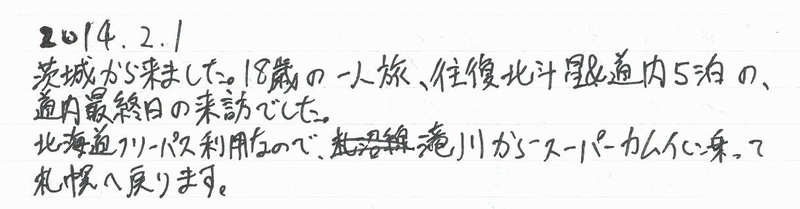 2014.2.1
茨城から来ました。18歳の一人旅、往復北斗星&道内5泊の、
道内最終日の来訪でした。
北海道フリーパス利用なので、札沼線滝川からスーパーカムイに乗って
札幌へ戻ります。